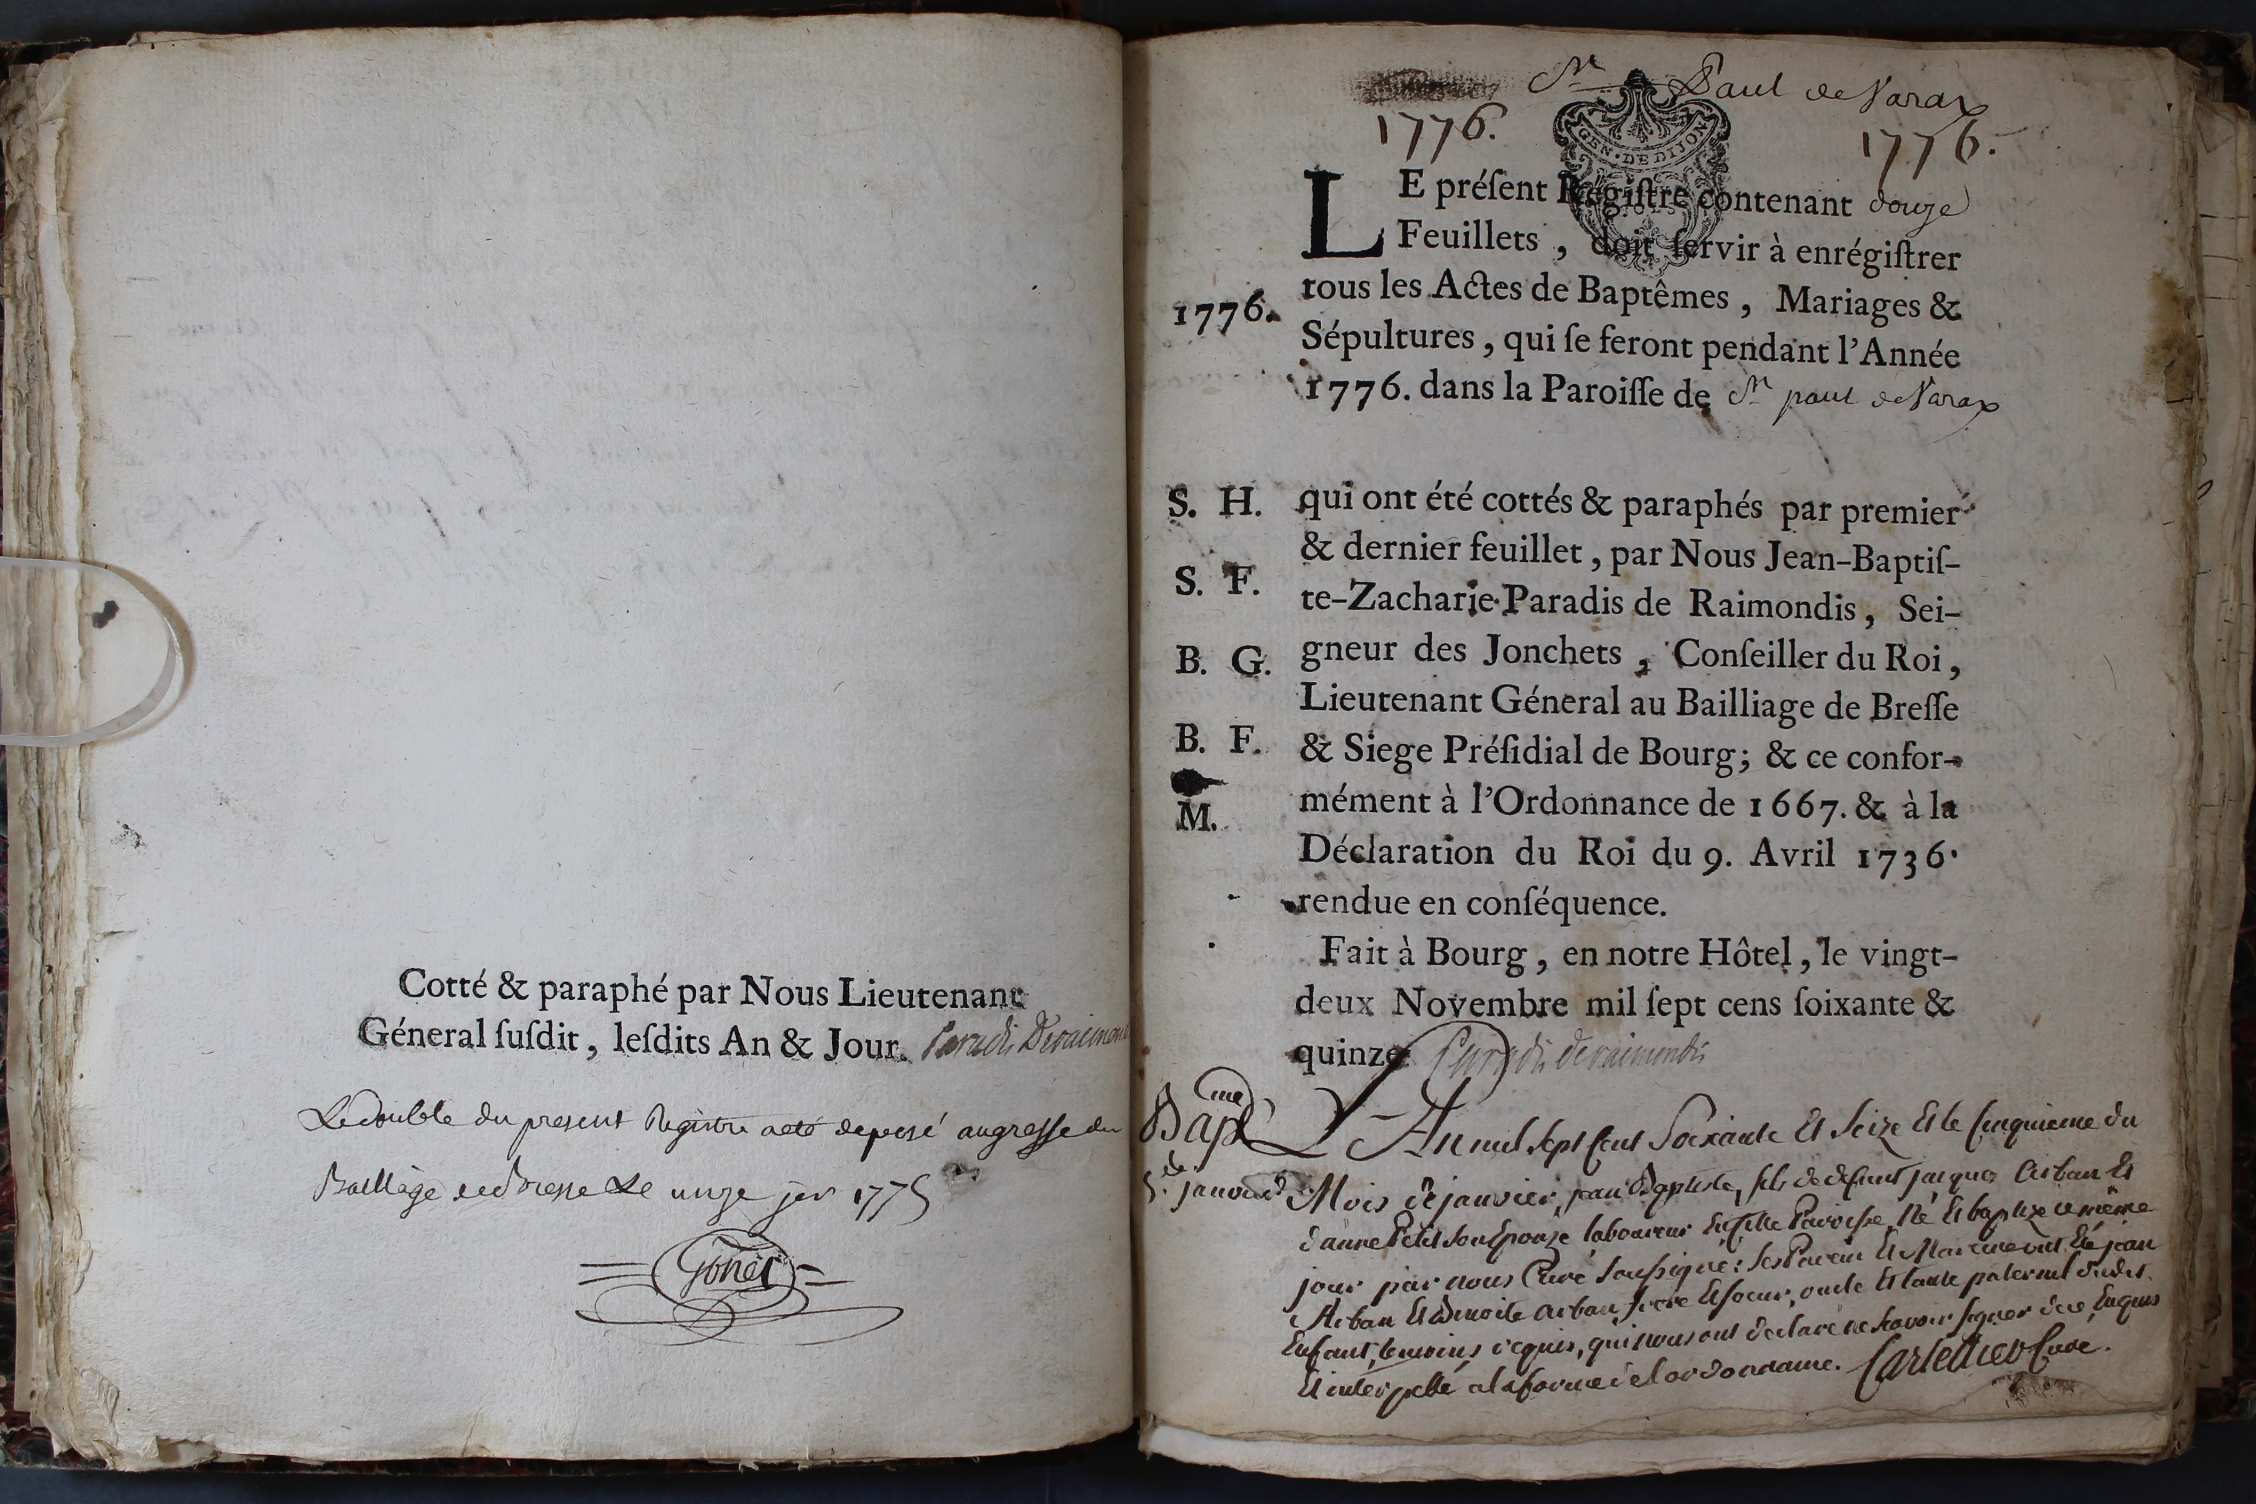 Cotté & paraphé par Nous Lieutenant
Géneral ſuſdit, leſdits An & Jour. Paradis Deraimondis
Le double du present Registre a eté deposé au greffe du
Bailliage de Bresse Le unze jer 1775
Gonet
St Paul de Varax
1776. 1776.
GEN. DE DIJON
LE préſent Régiſtre contenant douze
Feuillets, doit ſervir à enrégiſtrer
tous les Actes de Baptêmes, Mariages &
1776. Sépultures, qui ſe feront pendant l'Année
1776. dans la Paroiſſe de St paul de Varax
S. H. qui ont été cottés & paraphés par premier
& dernier feuillet, par Nous Jean-Baptiſ-
S. F. te-Zacharie Paradis de Raimondis, Sei-
B. G. gneur des Jonchets, Conſeiller du Roi,
Lieutenant Géneral au Bailliage de Breſſe
B. F. & Siege Préſidial de Bourg; & ce confor-
M. mément à l'Ordonnance de 1667. & à la
Déclaration du Roi du 9. Avril 1736.
rendue en conſéquence.
Fait à Bourg, en notre Hôtel, le vingt-
deux Novembre mil ſept cens ſoixante &
quinze Paradis deraimondis
Bapme L'An mil sept Cent Soixante Et Seize Et le Cinquieme du
5e janvier Mois de janvier, jean Baptiste, fils de defunt jacques Arban Et
d'anne Petit son Epouse laboureur En cette Paroisse, Né Et baptize le même
jour par nous Curé Soussigné: Ses Parein Et Mareine ont Eté jean
Arban Et Benoite arban frere Et soeur, oncle Et tante paternel dudit
Enfant, temoins requis, qui nous ont declaré ne scavoir signer de ce Enquis
Et interpellé a la forme de l'ordonnance. Carlellier Curé.